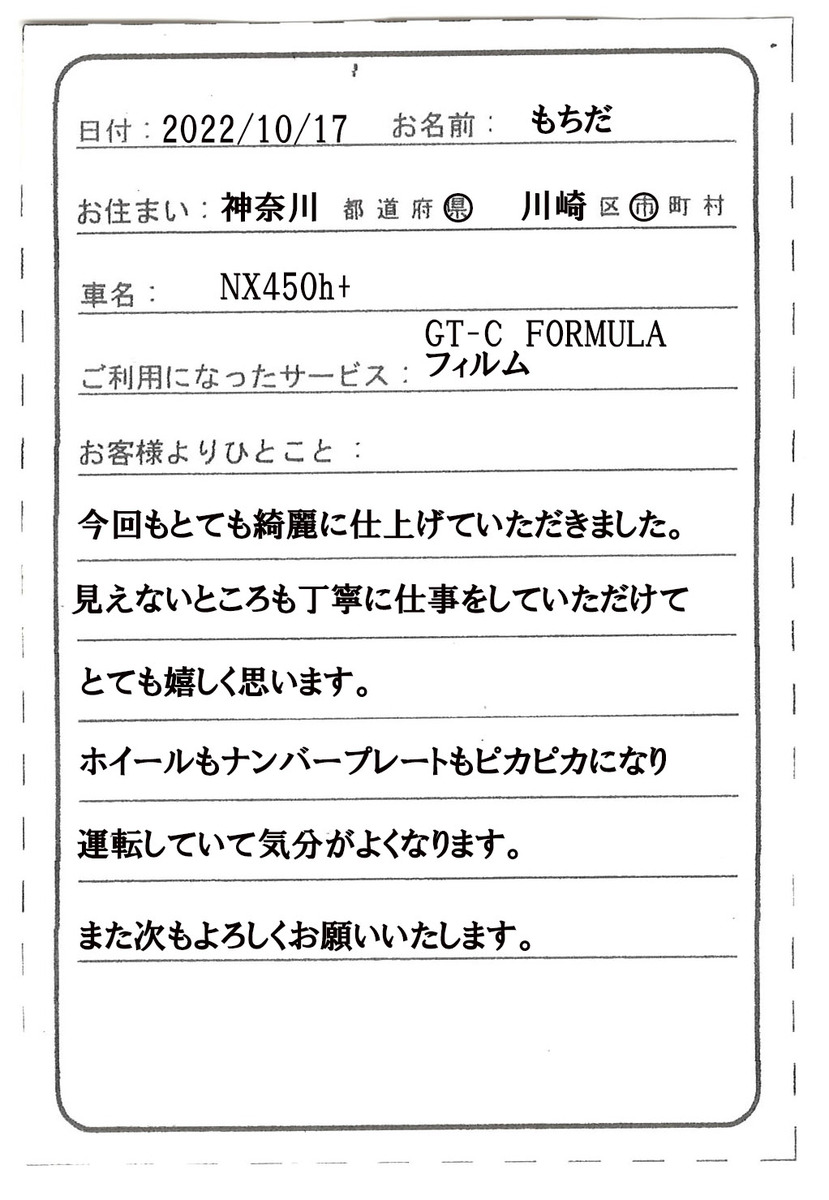 日付：2022/10/17 お名前：もちだ
お住まい：神奈川 都道府県 川崎 区市町村
車名： NX450h+
GT-C FORMULA
ご利用になったサービス：フィルム
お客様よりひとこと：
今回もとても綺麗に仕上げていただきました。
見えないところも丁寧に仕事をしていただけて
とても嬉しく思います。
ホイールもナンバープレートもピカピカになり
運転していて気分がよくなります。
また次もよろしくお願いいたします。